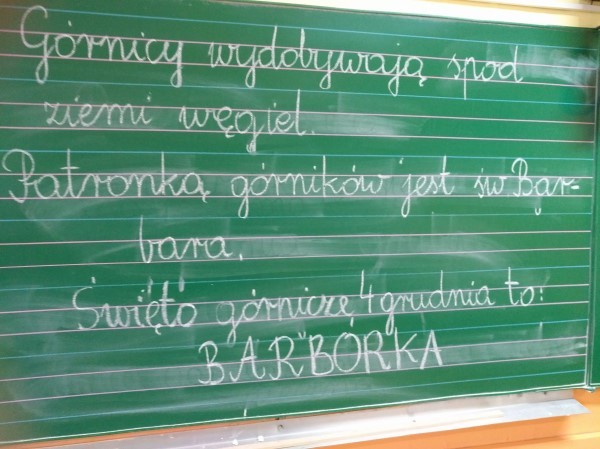 Górnicy wydobywają spod
ziemi węgiel.
Patronką górników jest św Bar-
bara.
Święto górnicze 4 grudnia to:
BARBÓRKA